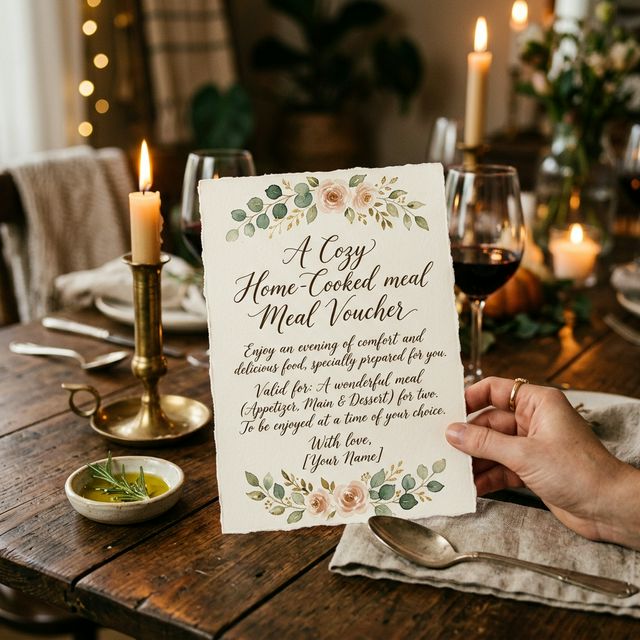 A Cozy
Home-Cooked meal
Meal Voucher
Enjoy an evening of comfort and
delicious food, specially prepared for you.
Valid for: A wonderful meal
(Appetizer, Main & Dessert) for two.
To be enjoyed at a time of your choice.
With love,
[Your Name]